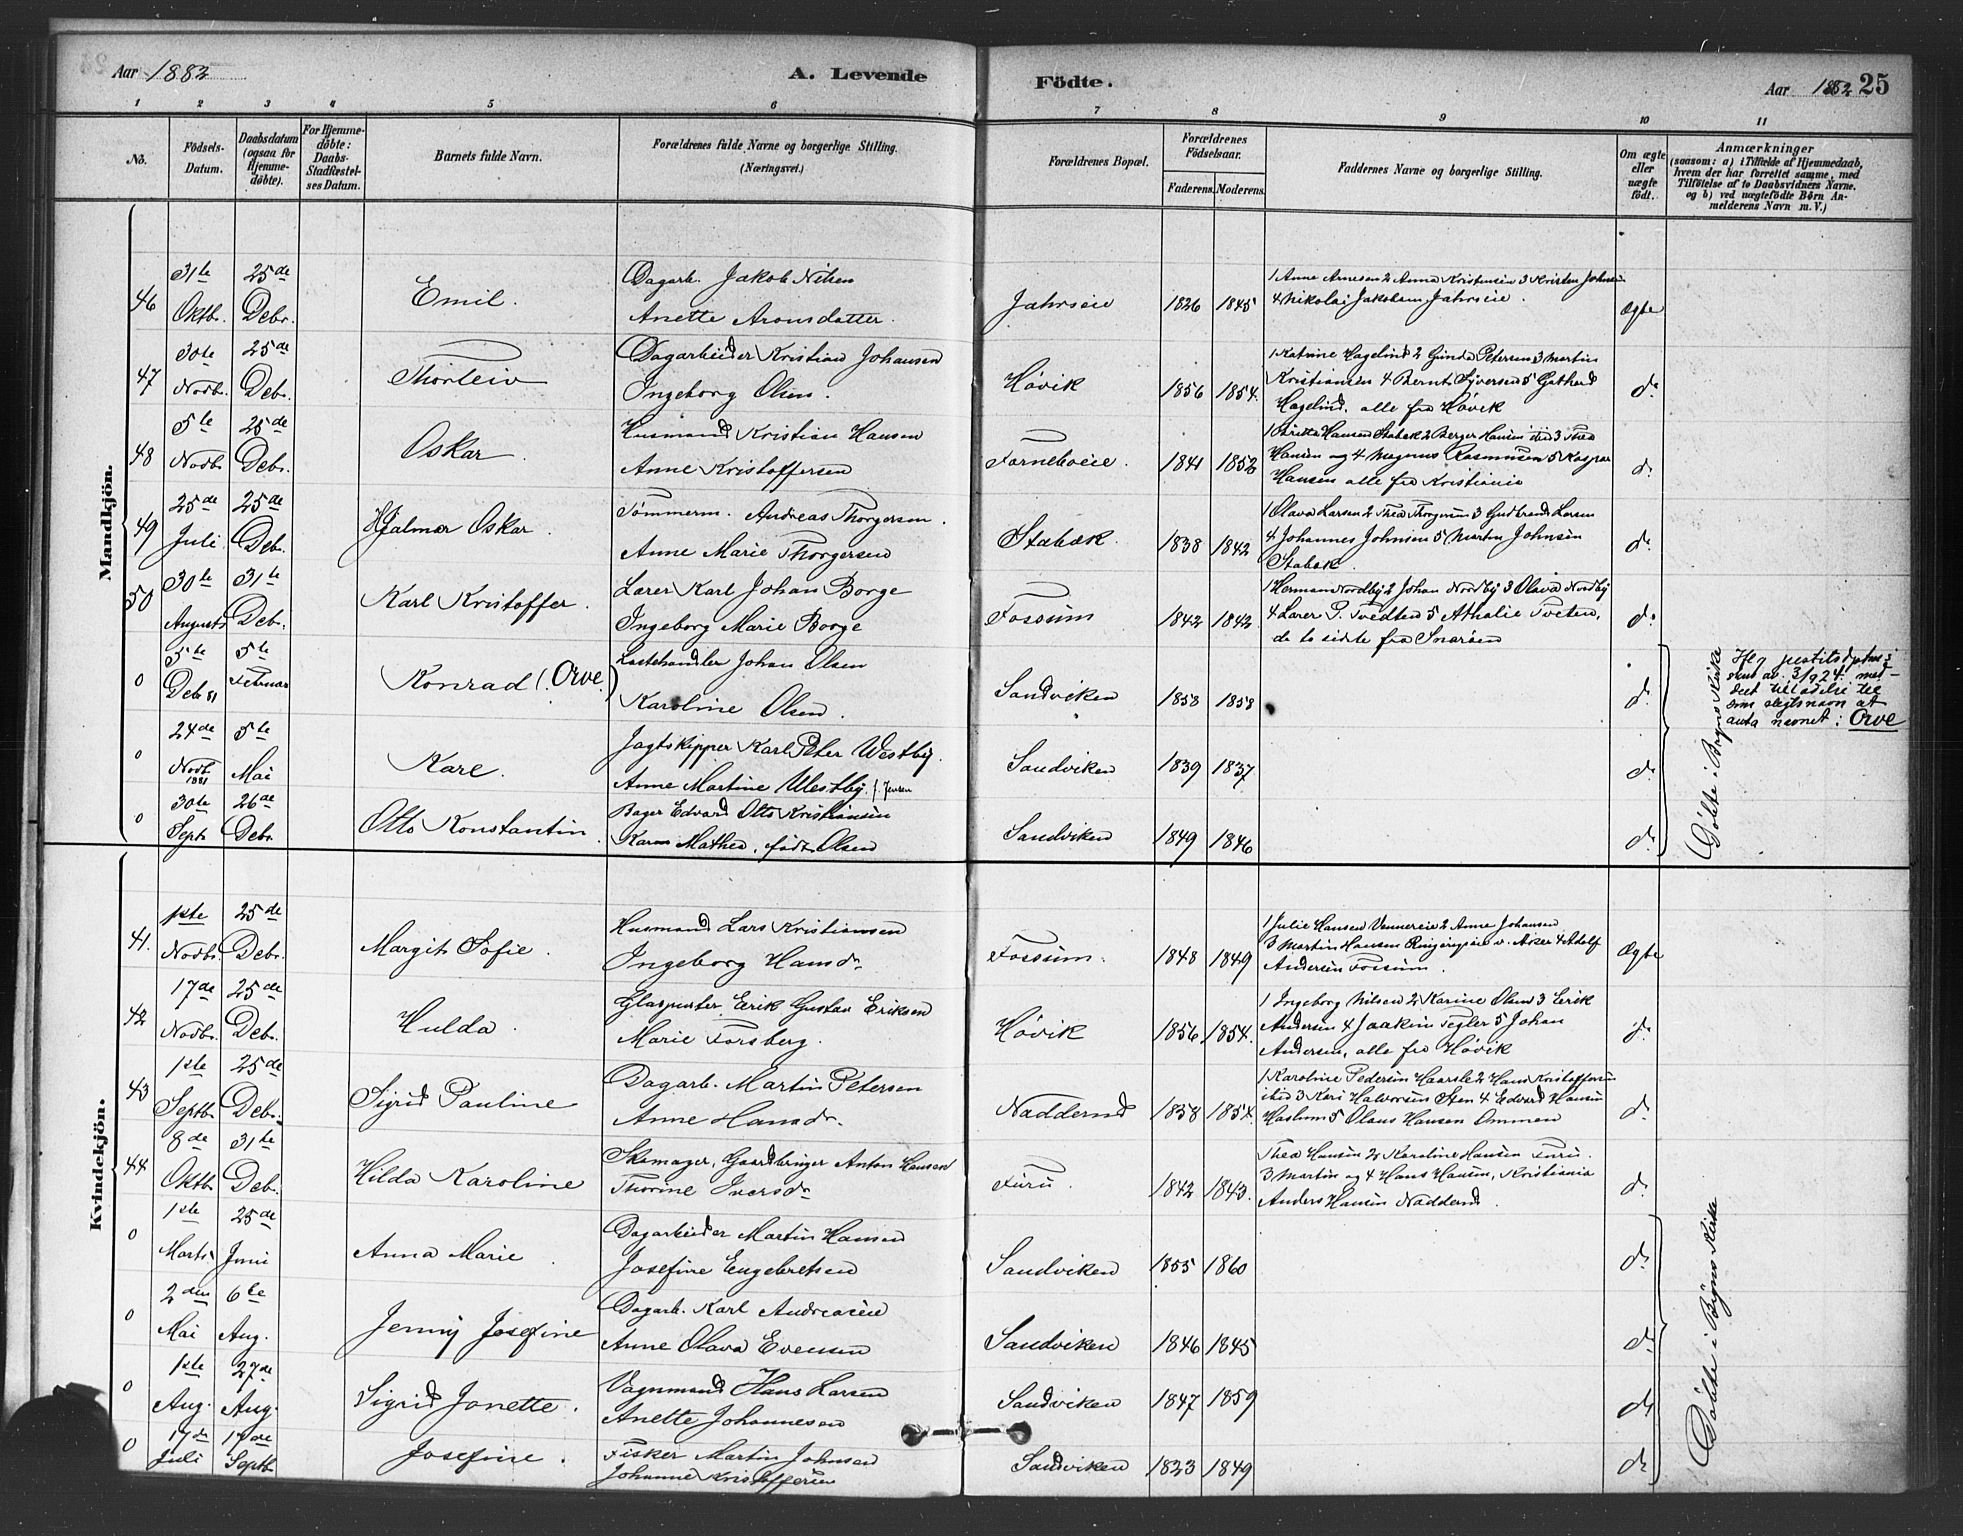 Aar 1882 A. Levende Födte. Aar 1882 25
1 2 3 4 5 6 7 8 9 10 11
No. Födsels-Datum. Daabsdatum (ogsaa for Hjemme-döbte). For Hjemme-döbte: Daabs-Stadfæstel-ses Datum. Barnets fulde Navn. Forældrenes fulde Navne og borgerlige Stilling. (Næringsvei.) Forældrenes Bopæl. Forældrenes Födselsaar. Faderens. Moderens. Faddernes Navne og borgerlige Stilling. Om ægte eller uægte födt. Anmærkninger
(saasom: a) i Tilfælde af Hjemmedaab,
hvem der har forrettet samme, med
Tilföielse af to Daabsvidners Navne.
og b) ved uægtefödte Börn An-
melderens Navn m. V.)
Mandkjön.
46 31te Oktbr. 25de Debr. Emil. Dagarb. Jakob Nilsen
Anette Aronsdatter. Jahrseie 1826 1845 1 Anne Arnesen 2 Anna Kristensen 3 Kristen Johnsen
4 Nikolaj Jakobsen Jahrseie. Ægte
47 30te Novbr. 25de Debr. Thorleiv Dagarbeider Kristian Johansen
Ingeborg Olsen. Hövik 1856 1854. 1 Katrine Hagelind 2 Gunda Petersen 3 Martin
Kristiansen 4 Bernt Syversen 5 Gothard
Hagelind, alle fra Hövik d.
48 5te Novbr. 25de Debr. Oskar. Husmand Kristian Hansen
Anne Kristoffersen Forneboeie. 1841 1852 1 Britte Hansen Stabæk 2 Berger Hansen ibid 3 Thea
Hansen og 4 Magnus Rasmussen 5 Kaspar
Hansen alle fra Kristiania d.
49 25de Juli 25de Deb. Hjalmar Oskar. Tömmerm. Andreas Thorgersen.
Anne Marie Thorgersen Stabæk. 1838 1842 1 Olava Larsen 2 Thea Thorgersen 3 Gudbrand Larsen
4 Johannes Johnsen 5 Martin Johnsen
Stabæk. d.
50 30te August 31te Debr. Karl Kristoffer. Lærer Karl Johan Borge
Ingeborg Marie Borge Fossum 1842 1842. 1 Herman Nordby 2 Johan Nordby 3 Olava Nordby
4 Lærer P. Tvedten 5 Athalie Tveten,
de to sidste fra Snaröen d.
0 5te Debr 81 5te Februar Konrad (Orve.) Lastehandler Johan Olsen
Karoline Olsen. Sandviken 1858 1858 d.
Döbte i Bryns Kirke
Iflg justitsdptnes
skriv av 3/9 24. med-
delt tilladelse til
som slegtsnavn at
anta navnet: Orve
0 24de Novbr. 1881 5te Mai Kare. Jagtskipper Karl Peter Westby.
Anne Martine Westby f. Jensen Sandviken 1839 1837 d.
0 30te Septbr 26de Debr. Otto Konstantin. Bager Edvard Otto Kristiansen
Karen Mathea, född Olsen Sandviken 1849 1846 d.
Kvindekjön.
41. 1ste Novbr. 25de Debr. Margit Sofie. Husmand Lars Kristiansen
Ingeborg Hansdr. Fossum. 1848 1849 1 Julie Hansen 2 Anne Johansen
3 Martin Hansen v. Aker 4 Adolf
Andersen Fossum. Ægte
42 17de Novbr. 25de Debr. Hulda. Glaspuster Erik Gustav Eriksen
Marie Forsberg. Hövik 1856 1854. 1 Ingeborg Nilsen 2 Karine Olsen 3 Erik
Andersen 4 Joakim Tegler 5 Johan
Andersen, alle fra Hövik d.
43 1ste Septbr. 25de Debr. Sigrid Pauline Dagarb. Martin Petersen
Anne Hansdr. Nadderud 1838 1854. 1 Karoline Pedersen 2 Hans Kristoffersen
ibid 3 Kari Halvorsen 4 Edvard Hansen
Haslum 5 Olaus Hansen Ommen d.
44 8de Oktbr 31te Debr. Hilda Karoline Skomager, Gaardbruger Anton Hansen
Thorine Iversdr Furu. 1842 1843. Thea Hansen 2 Karoline Hansen Furu.
3 Martin og 4 Hans Hansen, Kristiania
Anders Hansen Nadderud. d.
0 1ste Marts 25de Juni Anna Marie. Dagarbeider Martin Hansen
Josefine Engebretsen Sandviken 1855 1860 d.
Döbte i Bryns Kirke
0 2den Mai 6te Aug. Jenny Josefine Dagarb. Karl Andreasen
Anne Olava Evensen Sandviken 1846 1845 d.
0 1ste Aug. 27de Aug. Sigrid Jonette. Vognmand Hans Larsen
Anette Johannesen Sandviken 1847 1859 d.
0 17de Juli 17de Septbr Josefine. Fisker Martin Johnsen
Johanne Kristoffersen Sandviken 1823 1849 d.